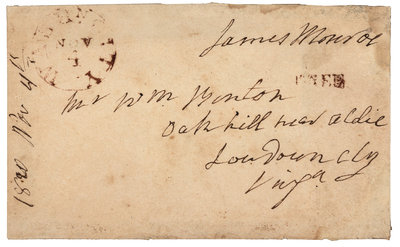 James Monroe
FREE
Mr Wm Benton
Oak hill near Aldie
Loudoun Cty
Virga
1820 Nov 4th
NOV